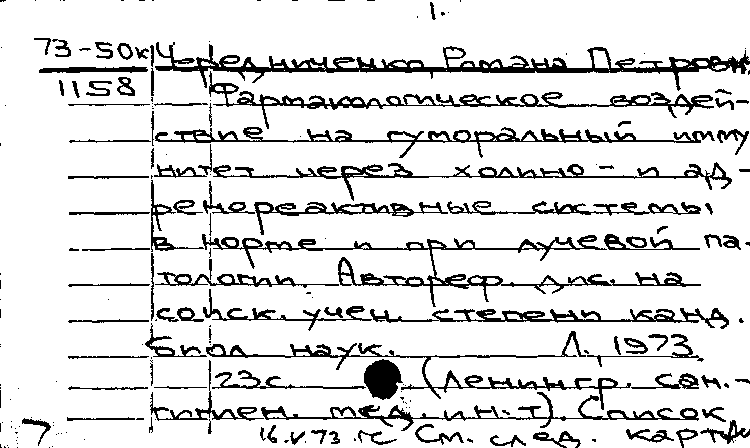 1.
73-50к Чередниченко, Романа Петровн.
1158 Фармакологическое воздей-
ствие на гуморальный имму
нитет через холино- и ад-
ренореактивные системы
в норме и при лучевой па-
тологии. Автореф. дис. на
соиск. учен. степени канд.
биол. наук. Л., 1973.
23с. (Ленингр. сан.-
гигиен. мед. ин-т). Список
7 16.V.73 гс См. след. карт.